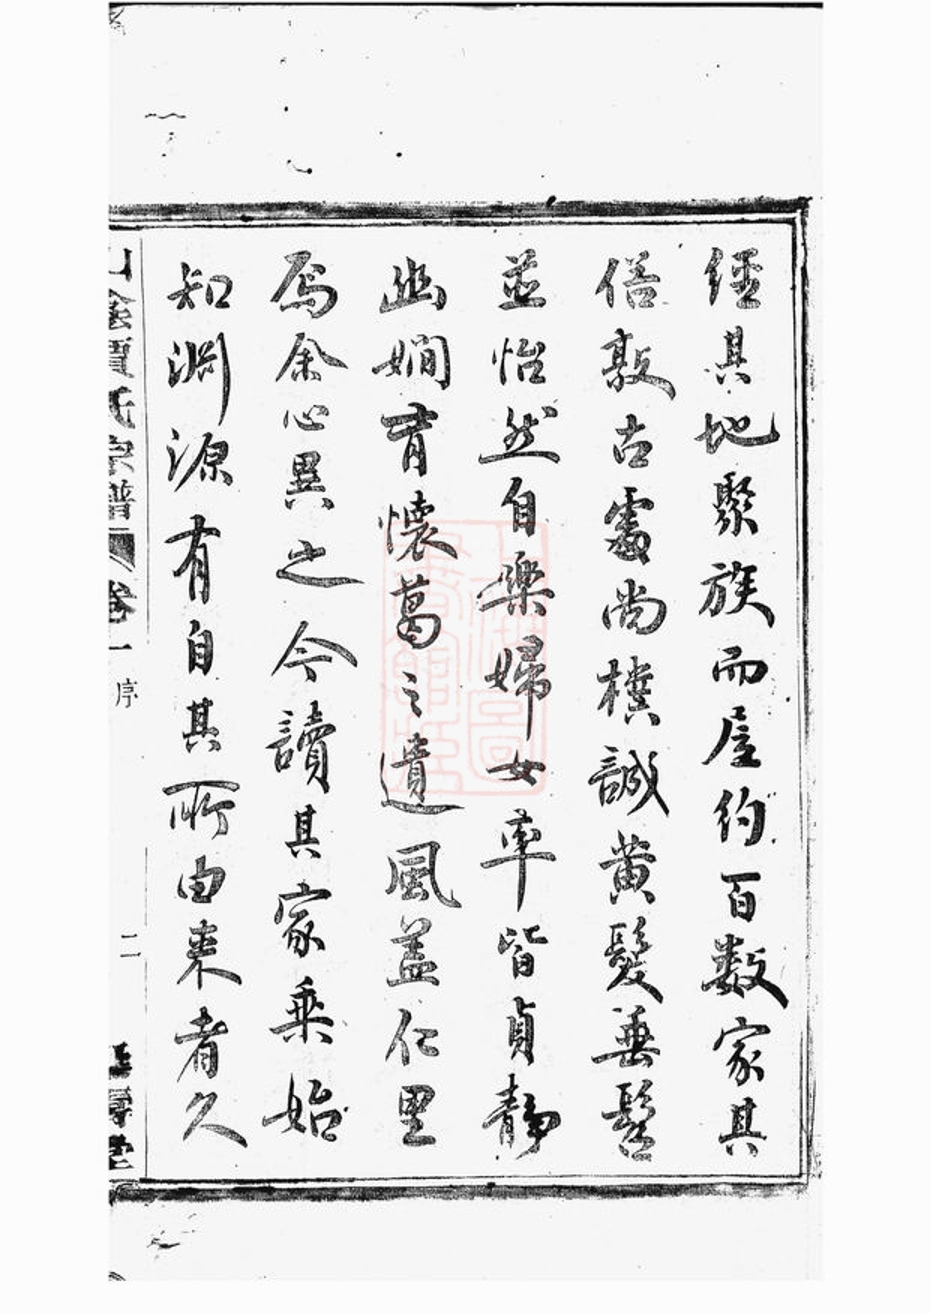 經其地聚族而居約百數家其
俗敦古處尚樸誠黄髮垂髫
並怡然自樂婦女率皆貞静
幽嫻有懷葛之遺風盖仁里
焉余心異之今讀其家乘始
知淵源有自其所由来者久
山陰賈氏宗譜 卷一 序 二